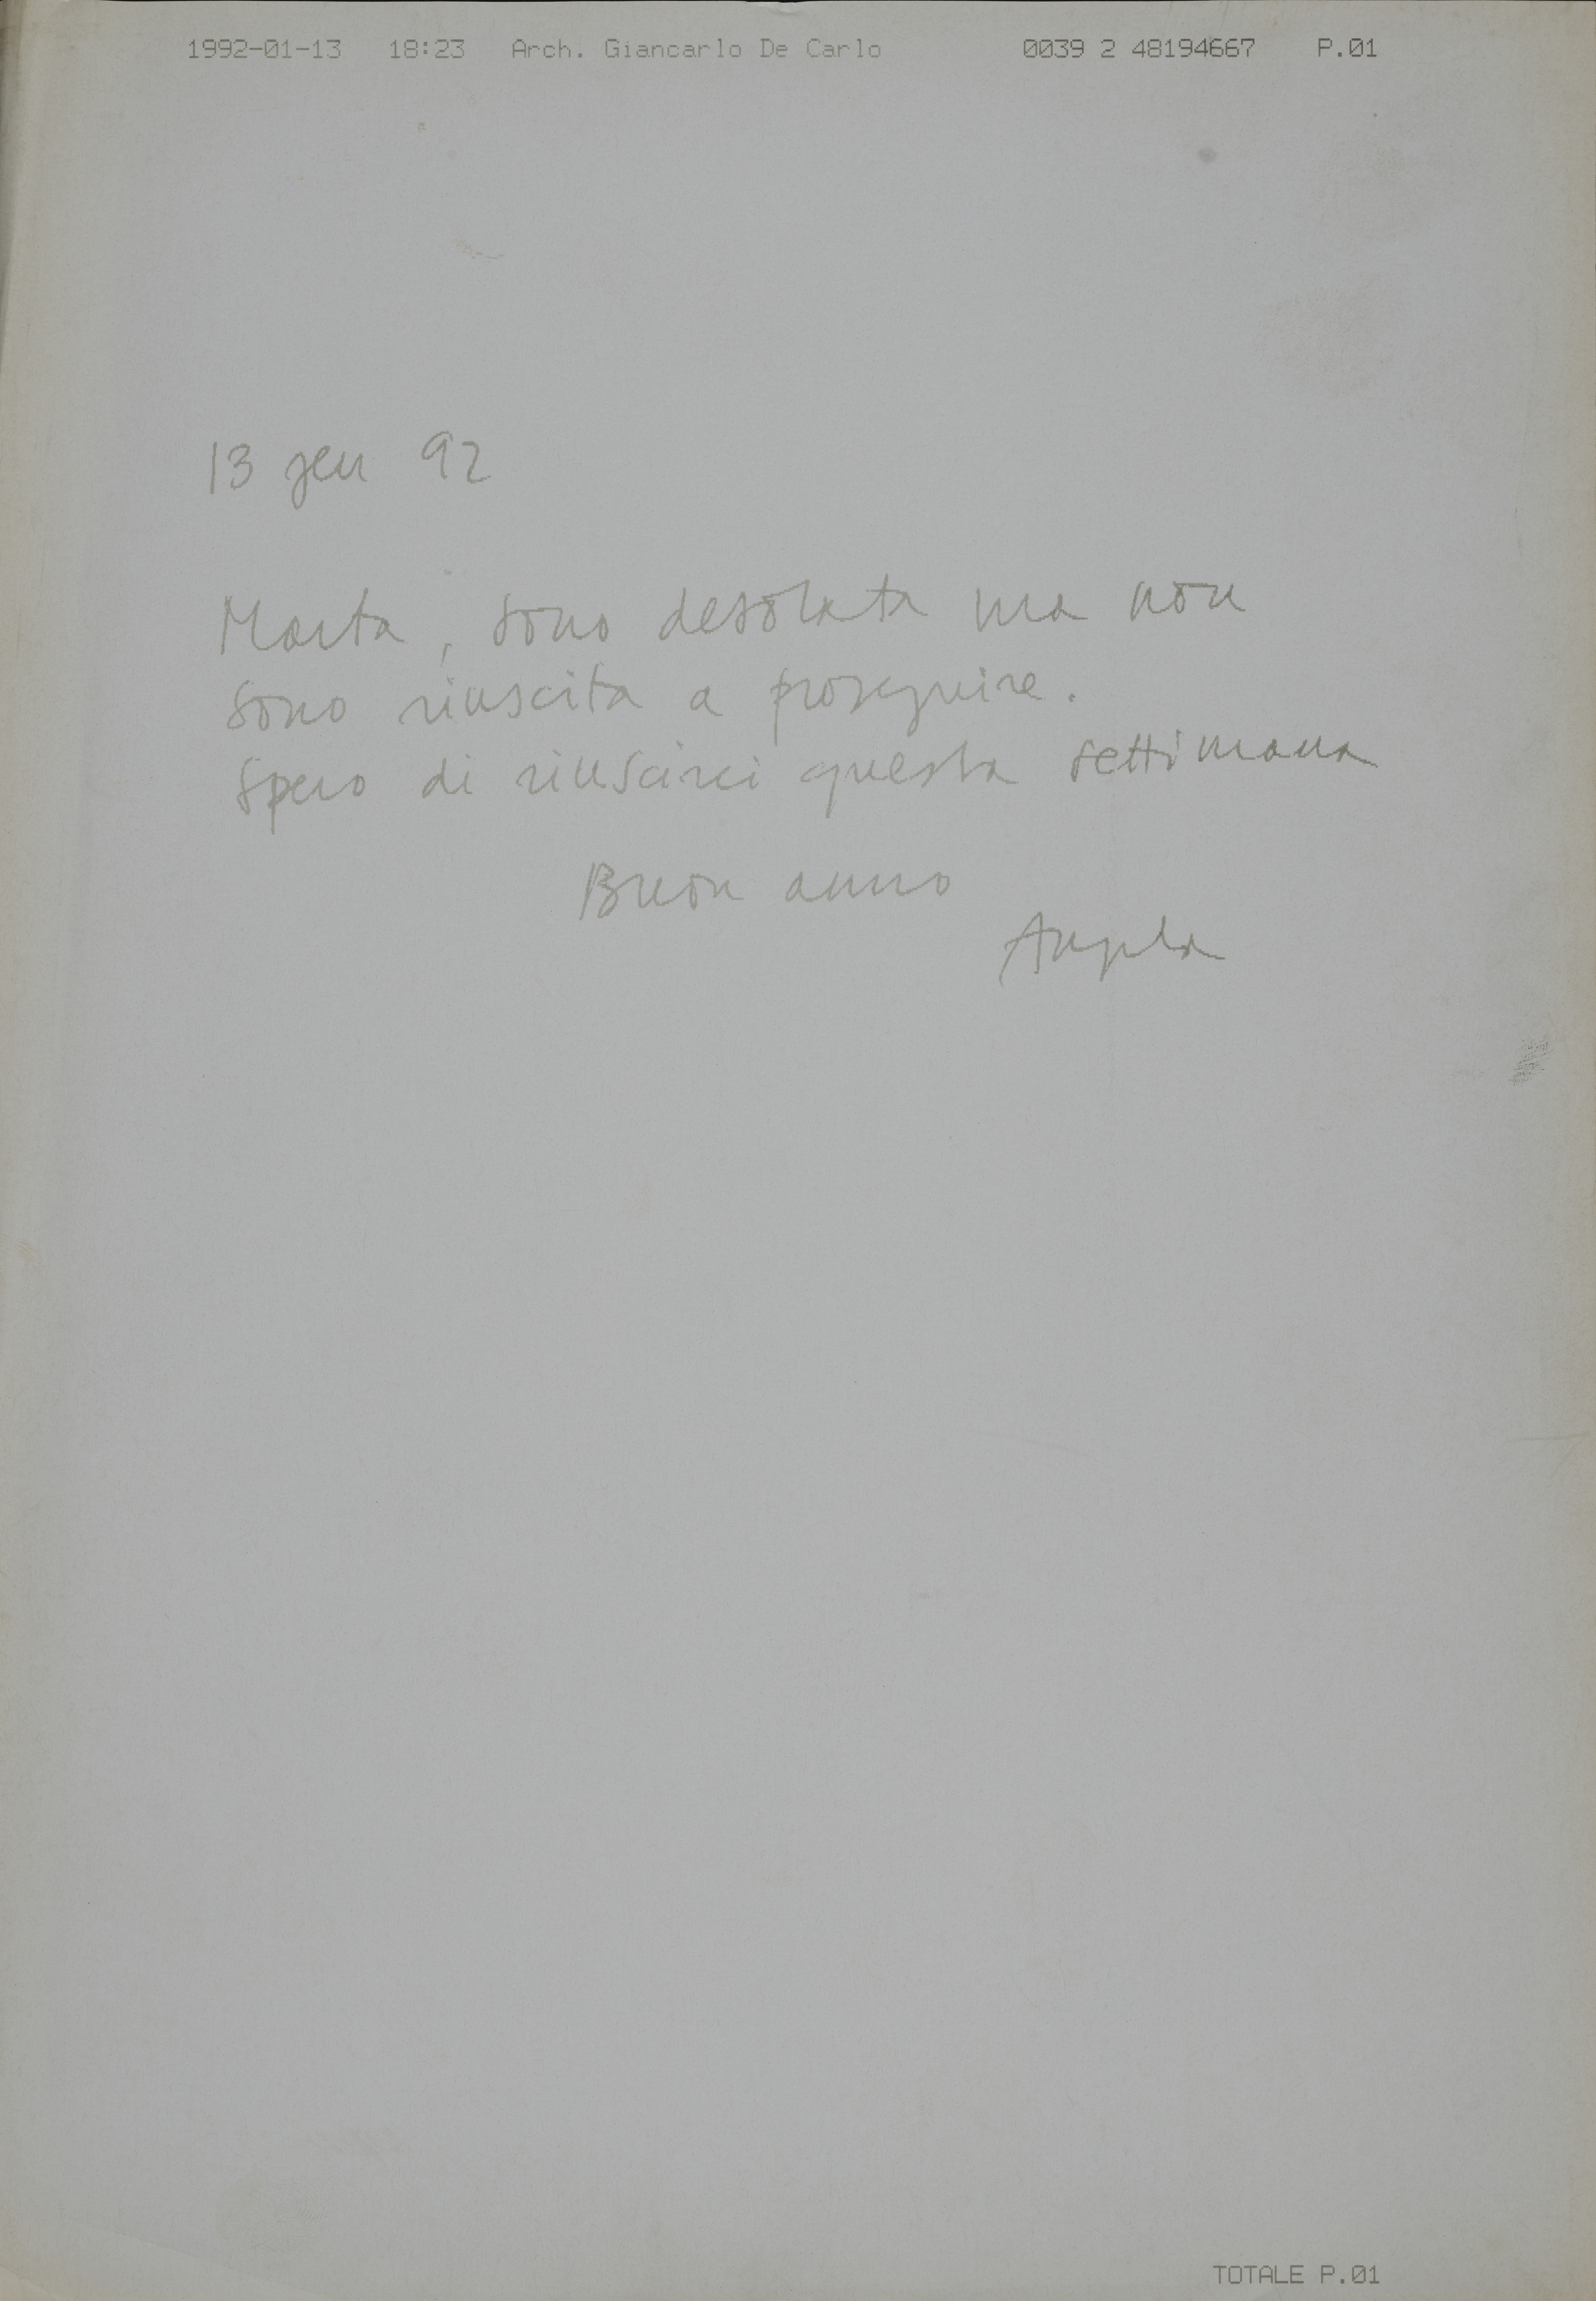 1992-01-13 18:23 Arch. Giancarlo De Carlo 0039 2 48194667 P.01
13 gen 92
Marta, sono desolata ma non
sono riuscita a proseguire.
Spero di riuscirci questa settimana
Buon anno
Angela
TOTALE P.01